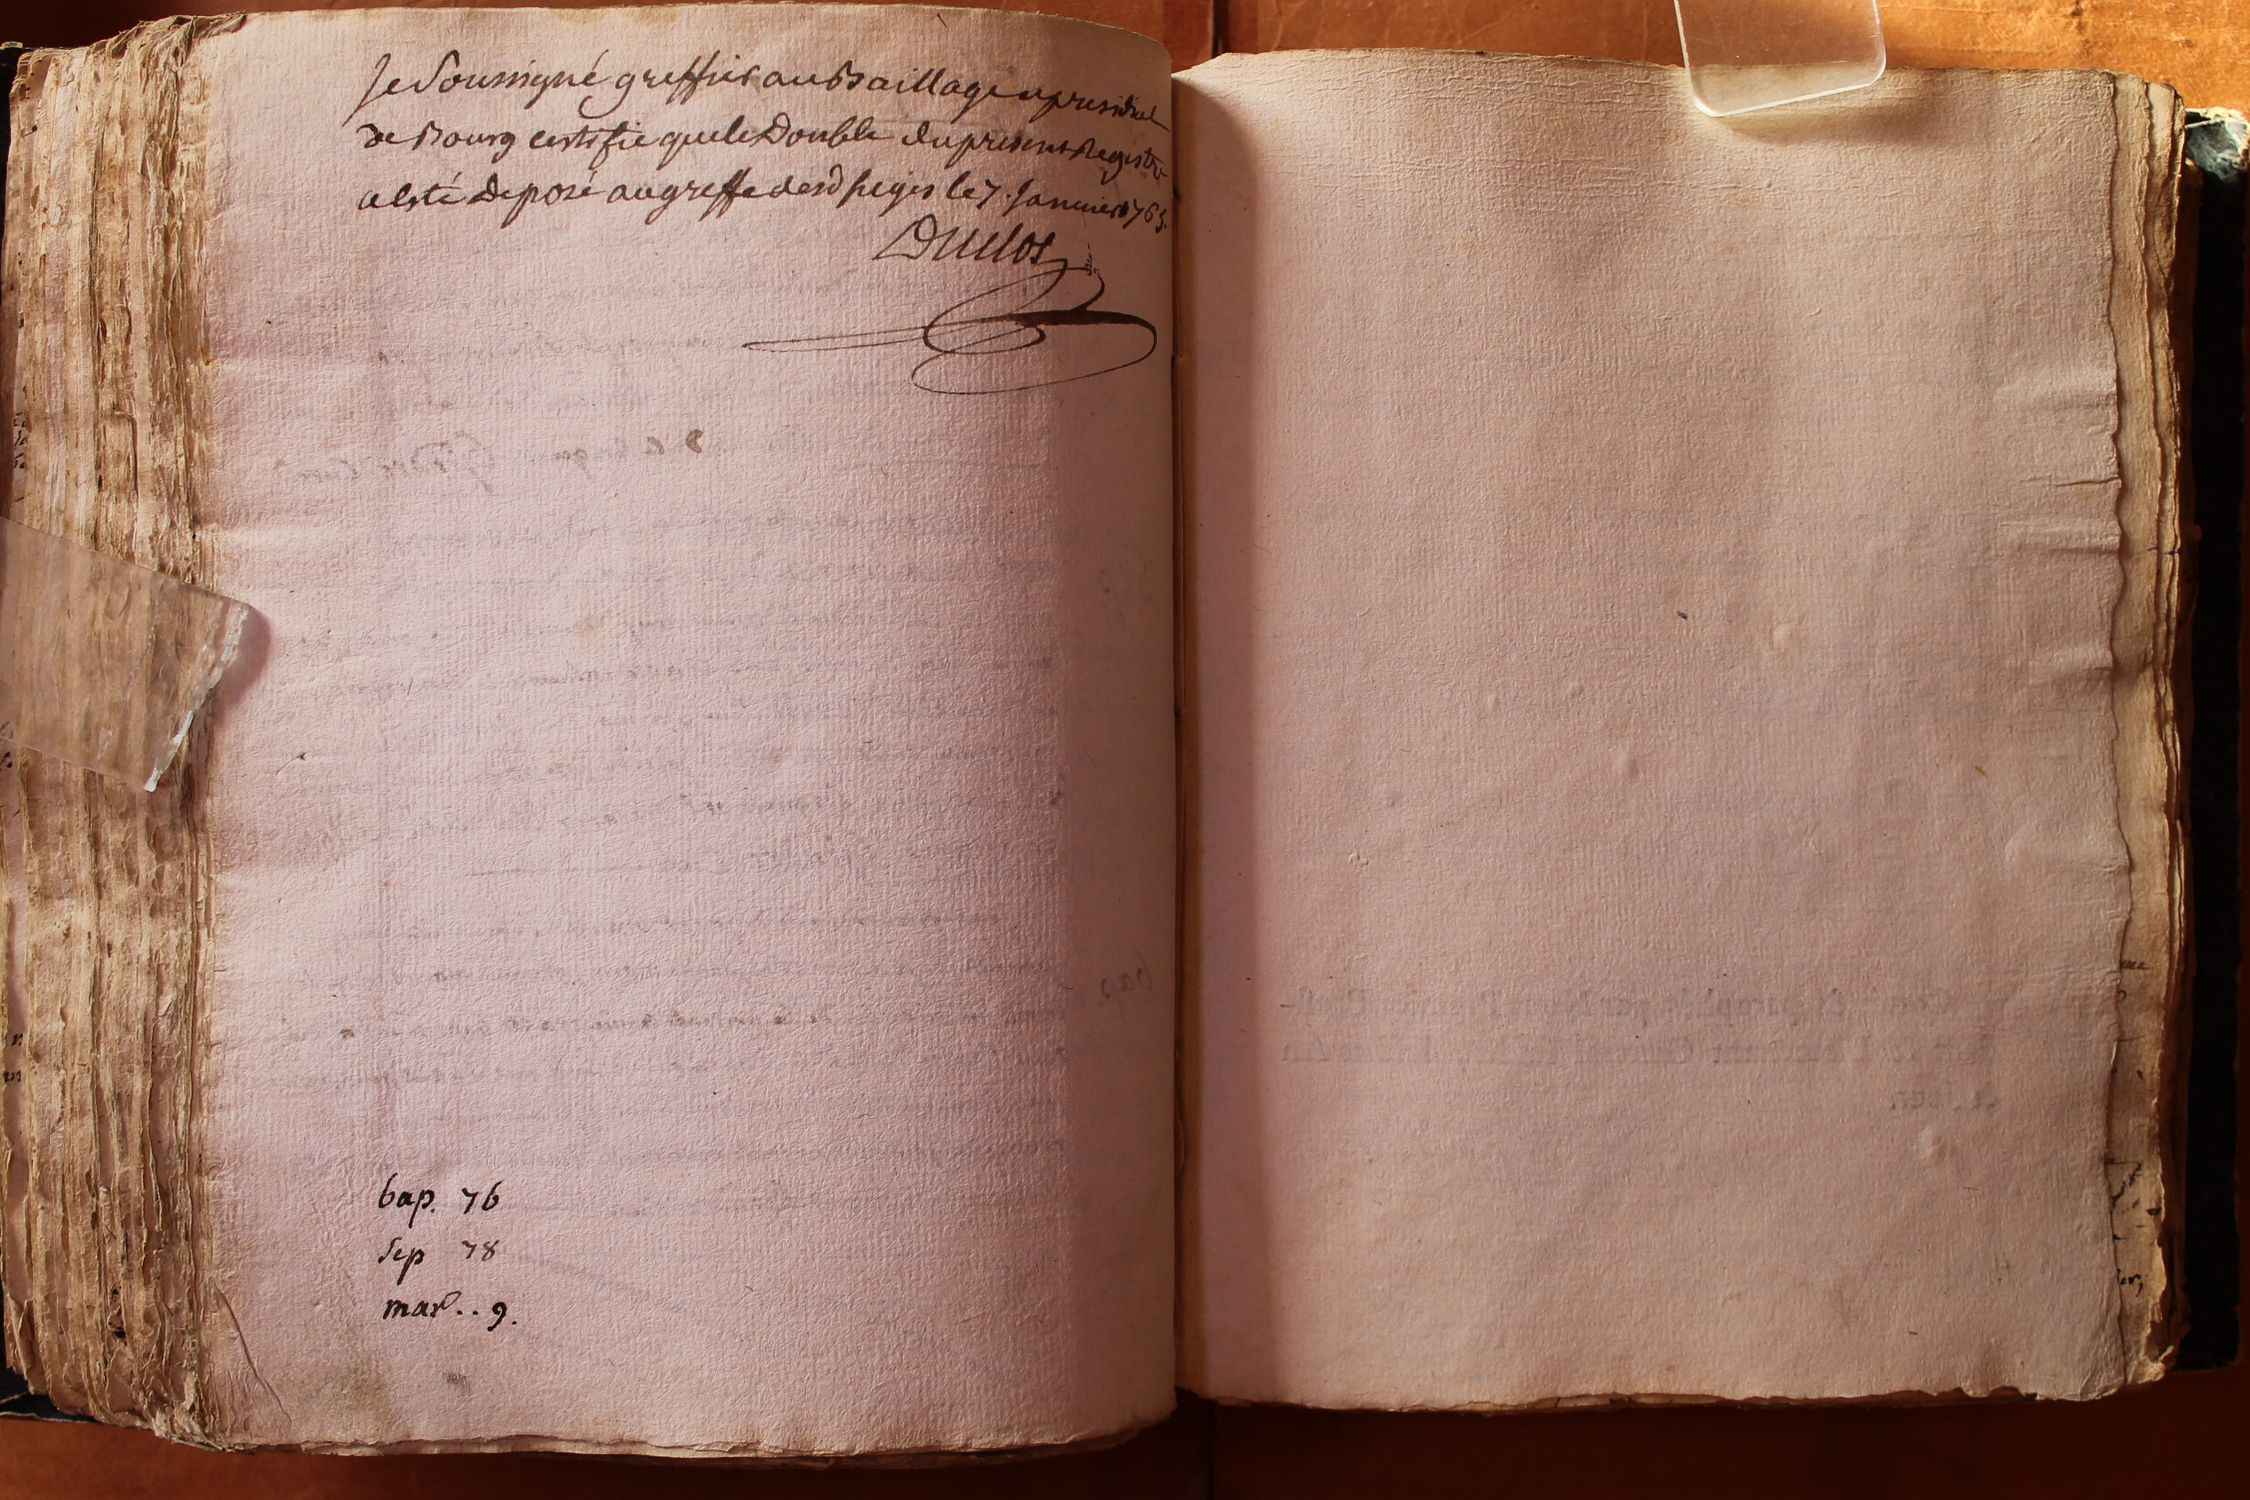 Je Soussigné greffier au Baillage et presidial
de Bourg certifie que le Double du present Registre
a esté deposé au greffe desd sieges le 7. Janvier 1763.
Duclos
bap. 76
sep 78
mar. . 9.